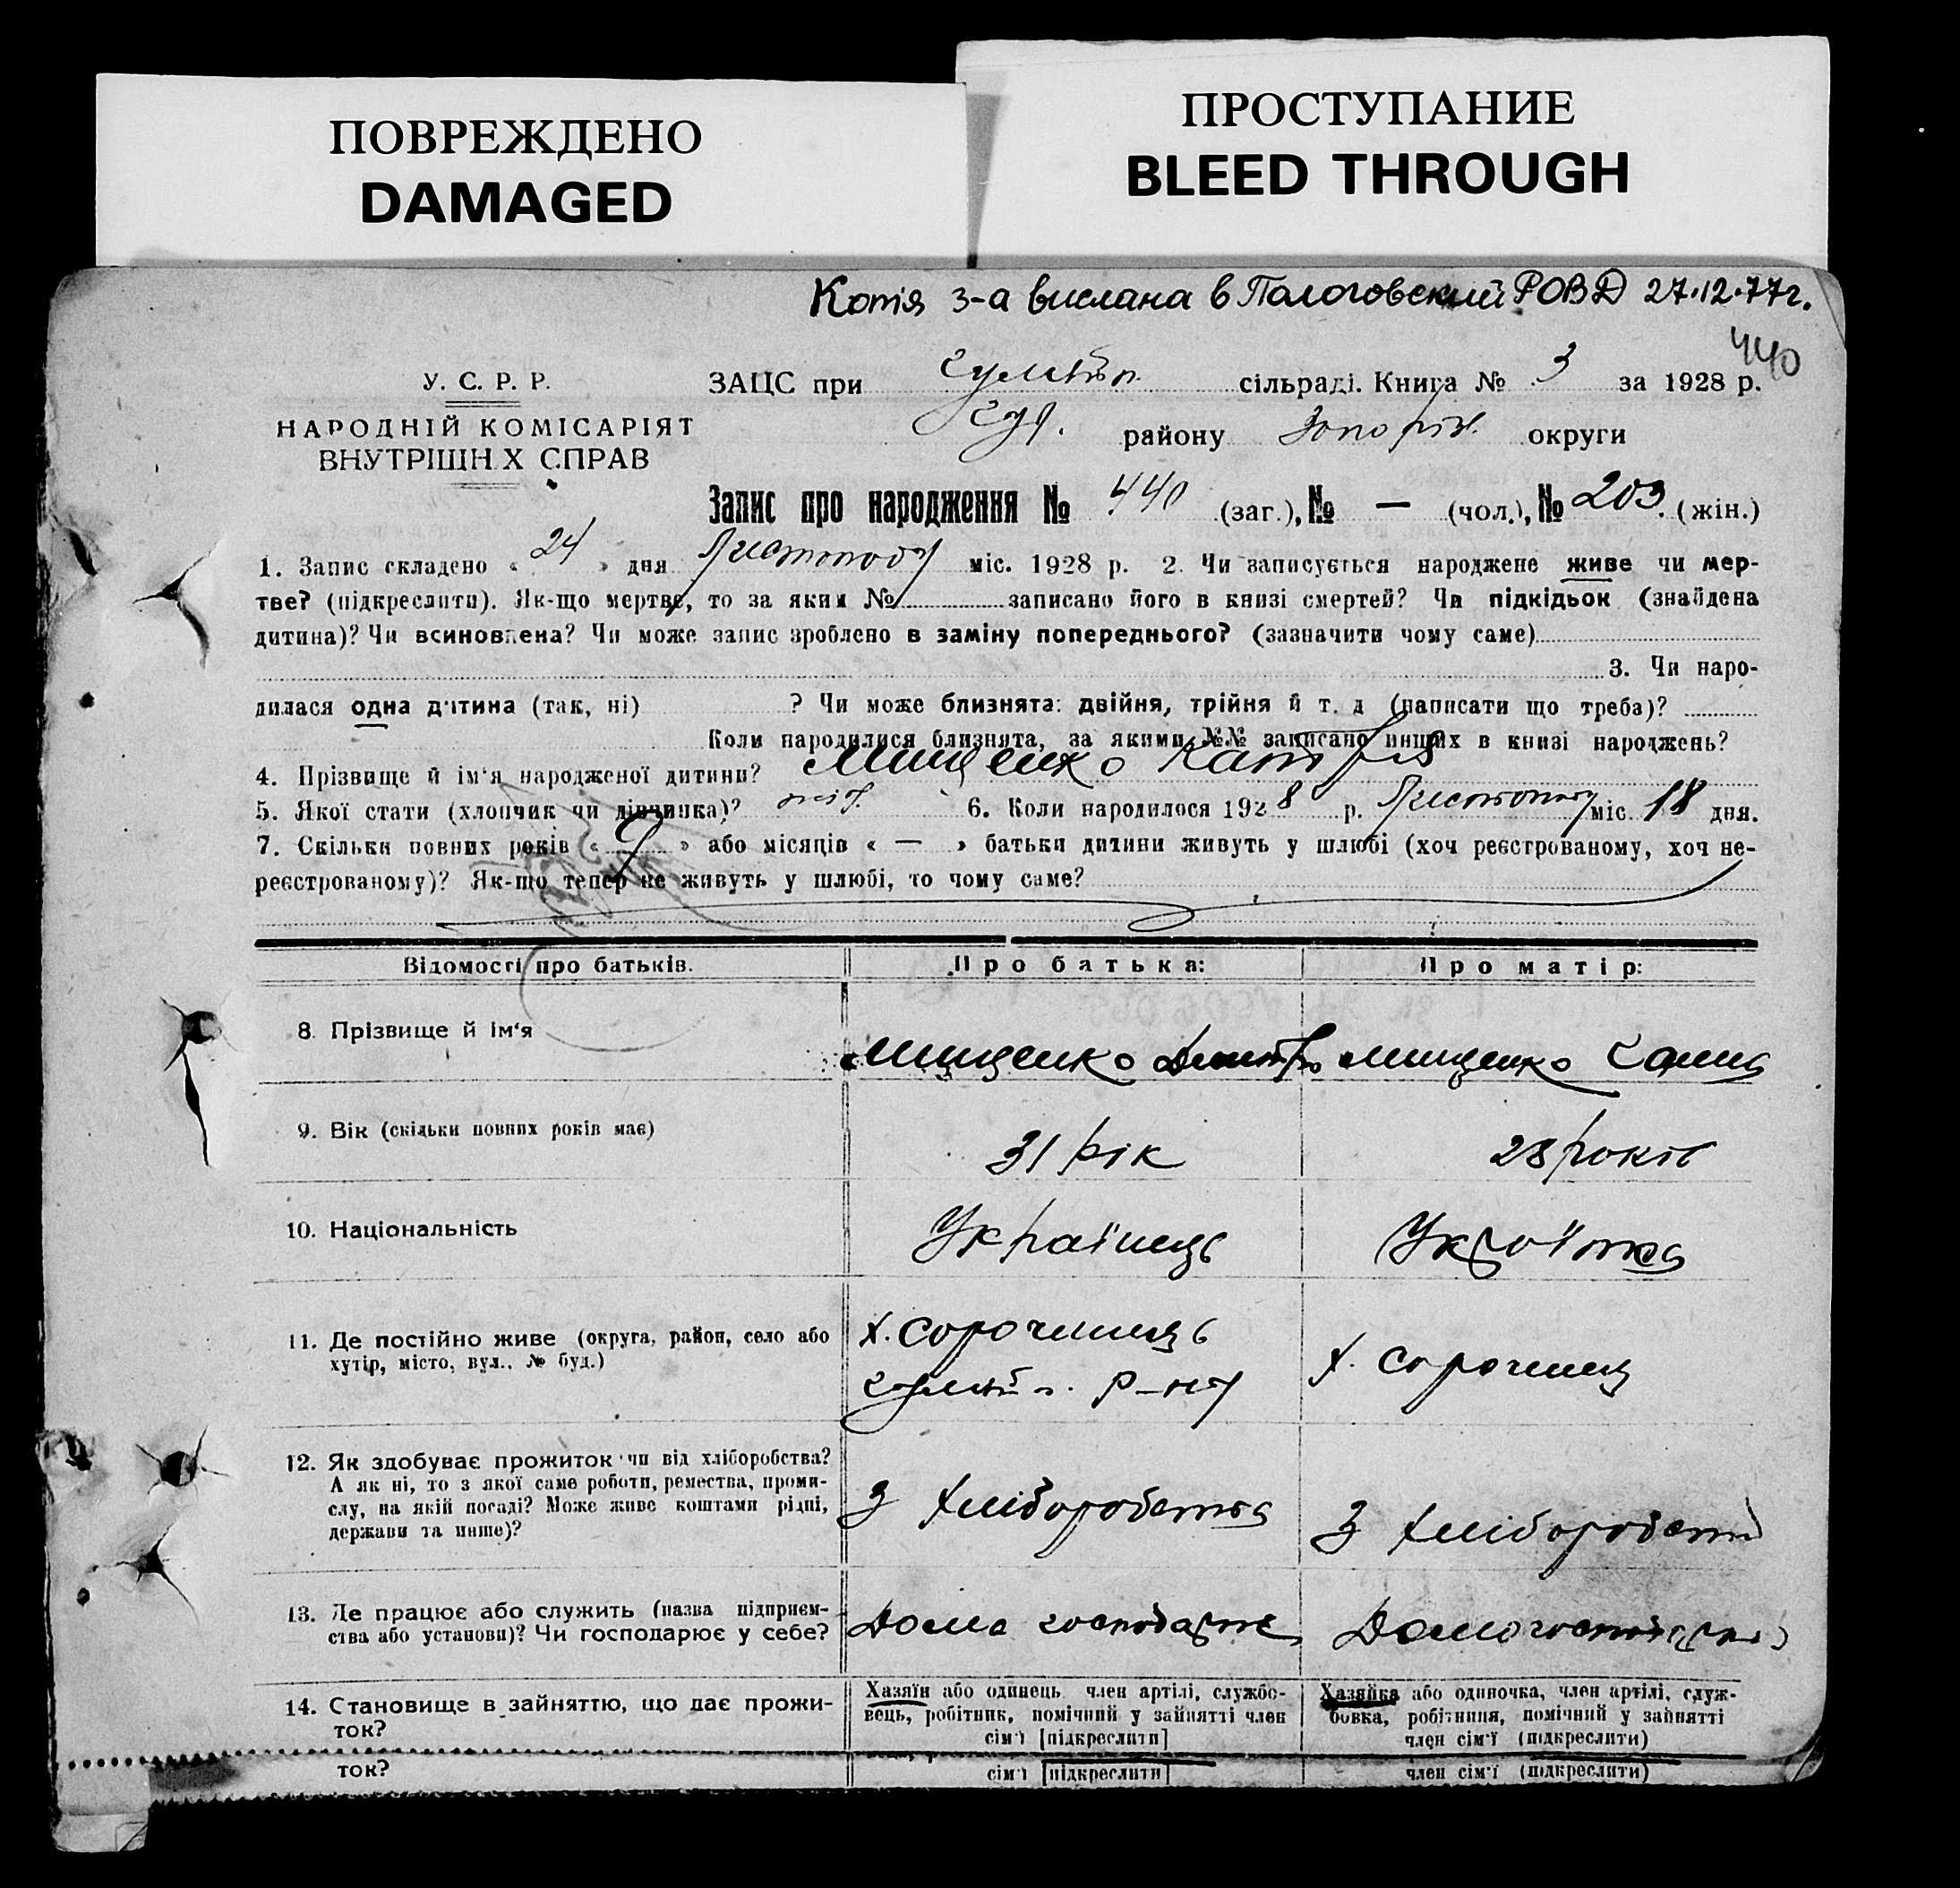 ПОВРЕЖДЕНО
DAMAGED
ПРОСТУПАНИЕ
BLEED THROUGH
Копія з-а вислана в Пологовский РОВД 27.12.77г.
440
У. С. Р. Р.
НАРОДНІЙ КОМІСАРІЯТ
ВНУТРІШН Х СПРАВ
ЗАЦС при Гуляйп. сільраді. Книга № 3 за 1928 р.
Гул. району Запоріз. округи
Запис про народження № 440 (заг.), № — (чол.), № 203. (жін.)
1. Запис складено « 24 » дня Листопада міс. 1928 р. 2. Чи записується народжене живе чи мер-
тве? (підкреслити). Як-що мертве, то за яким № записано його в книзі смертей? Чи підкідьок (знайдена
дитина)? Чи всиновлена? Чи може запис зроблено в заміну попереднього? (зазначити чому саме)
3. Чи наро-
дилася одна дитина (так, ні) ? Чи може близнята: двійня, трійня й т. д (написати що треба)?
Коли народилися близнята, за якими №№ записано инших в книзі народжень?
4. Прізвище й ім‘я народженої дитини? Мищенко Катря
5. Якої стати (хлопчик чи дівчинка)? жін. 6. Коли народилося 1928 р. Листопаду міс. 18 дня.
7. Скільки повних років « 9 » або місяців « — » батьки дитини живуть у шлюбі (хоч реєстрованому, хоч не-
реєстрованому)? Як-що тепер не живуть у шлюбі, то чому саме?
Відомості про батьків. Про батька: Про матір:
8. Прізвище й ім‘я Мищенко Дмитро Мищенко Ганна
9. Вік (скільки повних років має) 31 рік 28 років
10. Національність Українець Українка
11. Де постійно живе (округа, район, село або
хутір, місто, вул., № буд.)
х. Сорочинець
Гуляйп. р-ну
х. Сорочинец
12. Як здобуває прожиток чи від хліборобства?
А як ні, то з якої саме роботи, ремества, проми-
слу, на якій посаді? Може живе коштами рідні,
держави та инше)?
З хліборобства
З хліборобств
13. Де працює або служить (назва підприєм-
ства або установи)? Чи господарює у себе?
Дома господарює
Дома господарює
14. Становище в зайняттю, що дає прожи-
ток?
Хазяїн або одинець, член артілі, службо-
вець, робітник, помічний у зайнятті член
сім‘ї [підкреслити]
Хазяйка або одиночка, член артілі, служ-
бовка, робітниця, помічний у зайнятті
член сім‘ї (підкреслити)
ток?
сім‘ї [підкреслити]
член сім‘ї (підкреслити)